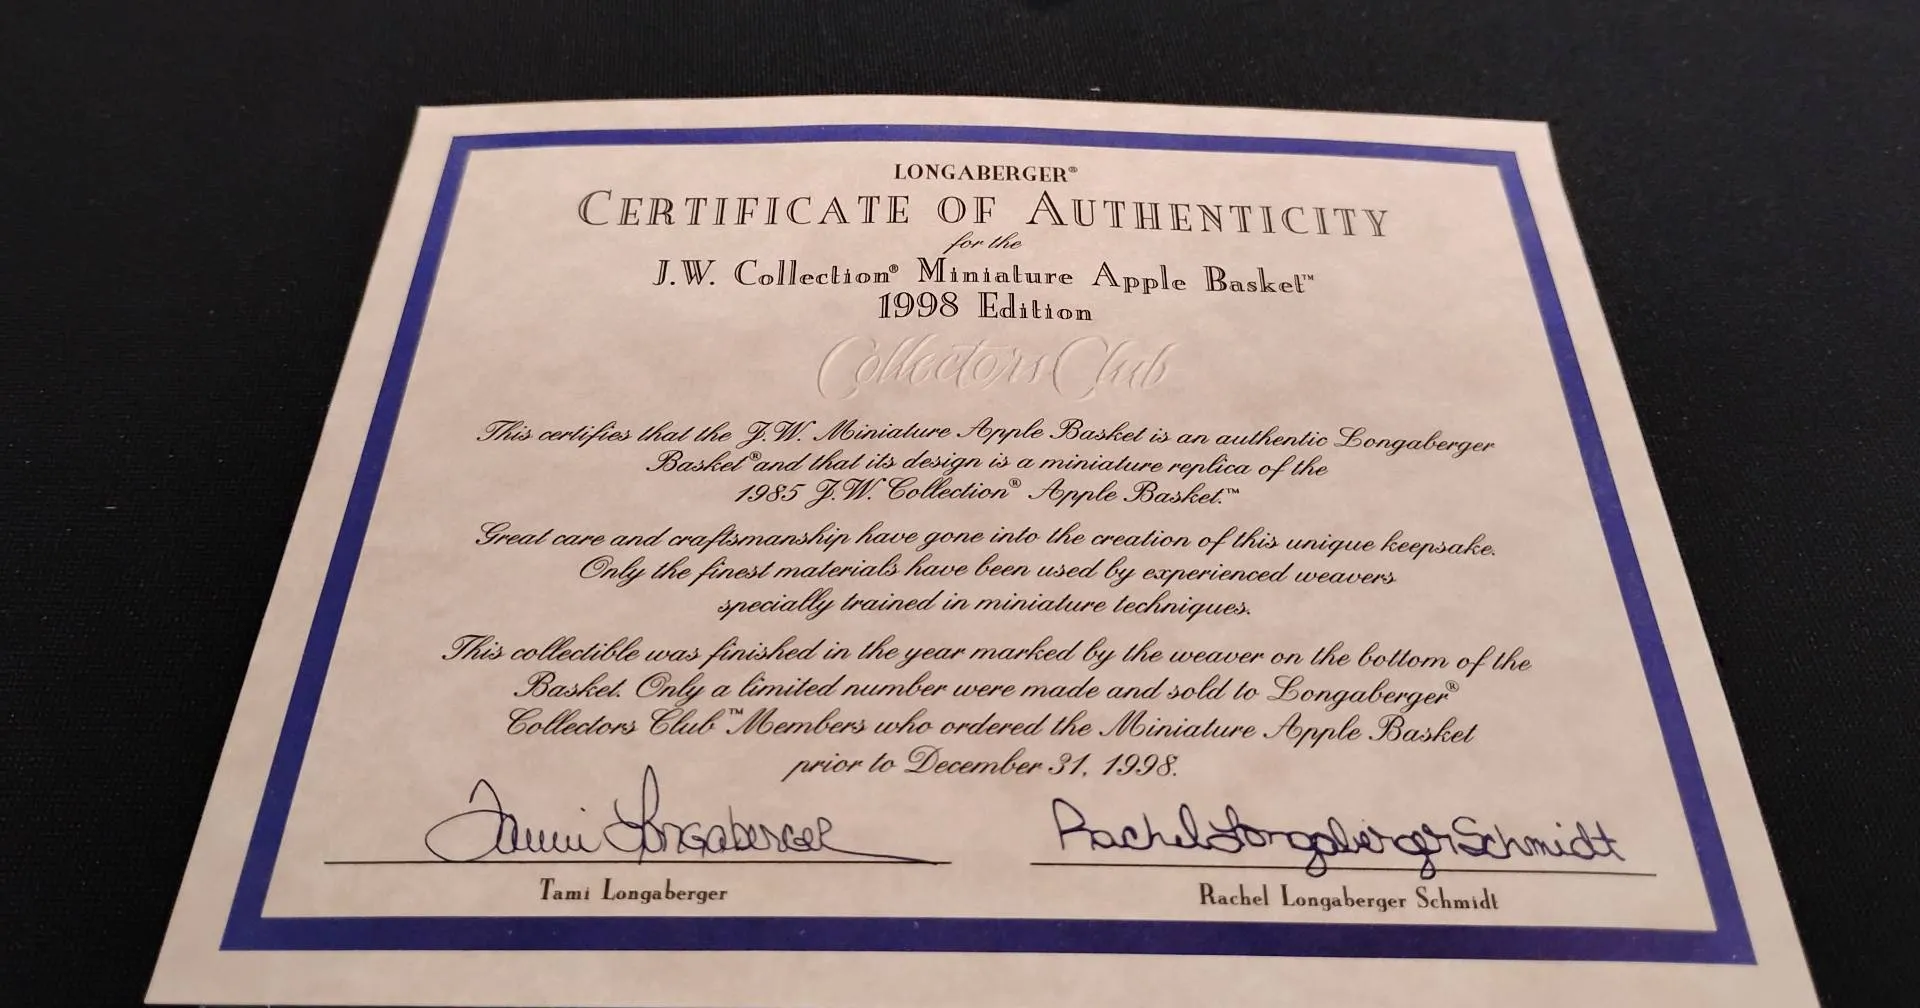 LONGABERGER®
CERTIFICATE OF AUTHENTICITY
for the
J.W. Collection® Miniature Apple Basket™
1998 Edition
Collectors Club
This certifies that the J.W. Miniature Apple Basket is an authentic Longaberger
Basket® and that its design is a miniature replica of the
1985 J.W. Collection® Apple Basket.™
Great care and craftsmanship have gone into the creation of this unique keepsake.
Only the finest materials have been used by experienced weavers
specially trained in miniature techniques.
This collectible was finished in the year marked by the weaver on the bottom of the
Basket. Only a limited number were made and sold to Longaberger®
Collectors Club™ Members who ordered the Miniature Apple Basket
prior to December 31, 1998.
Tami Longaberger Rachel Longaberger Schmidt
Tami Longaberger Rachel Longaberger Schmidt